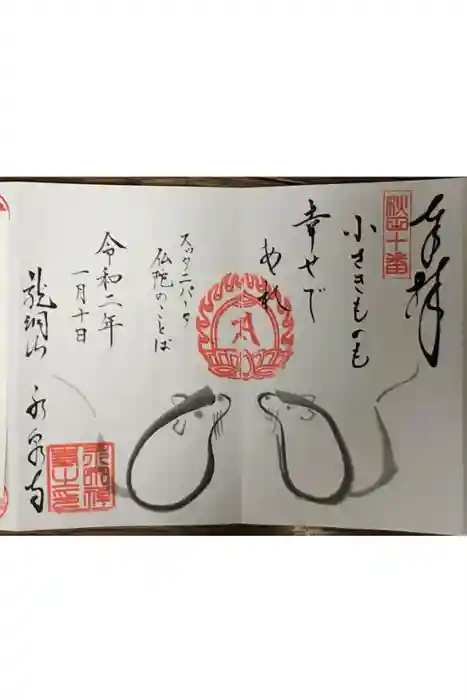 奉拝
秋田十番
小さきものも
幸せで
あれ
スッタニパータ
仏陀のことば
令和二年
一月十日
龍洞山
永泉寺